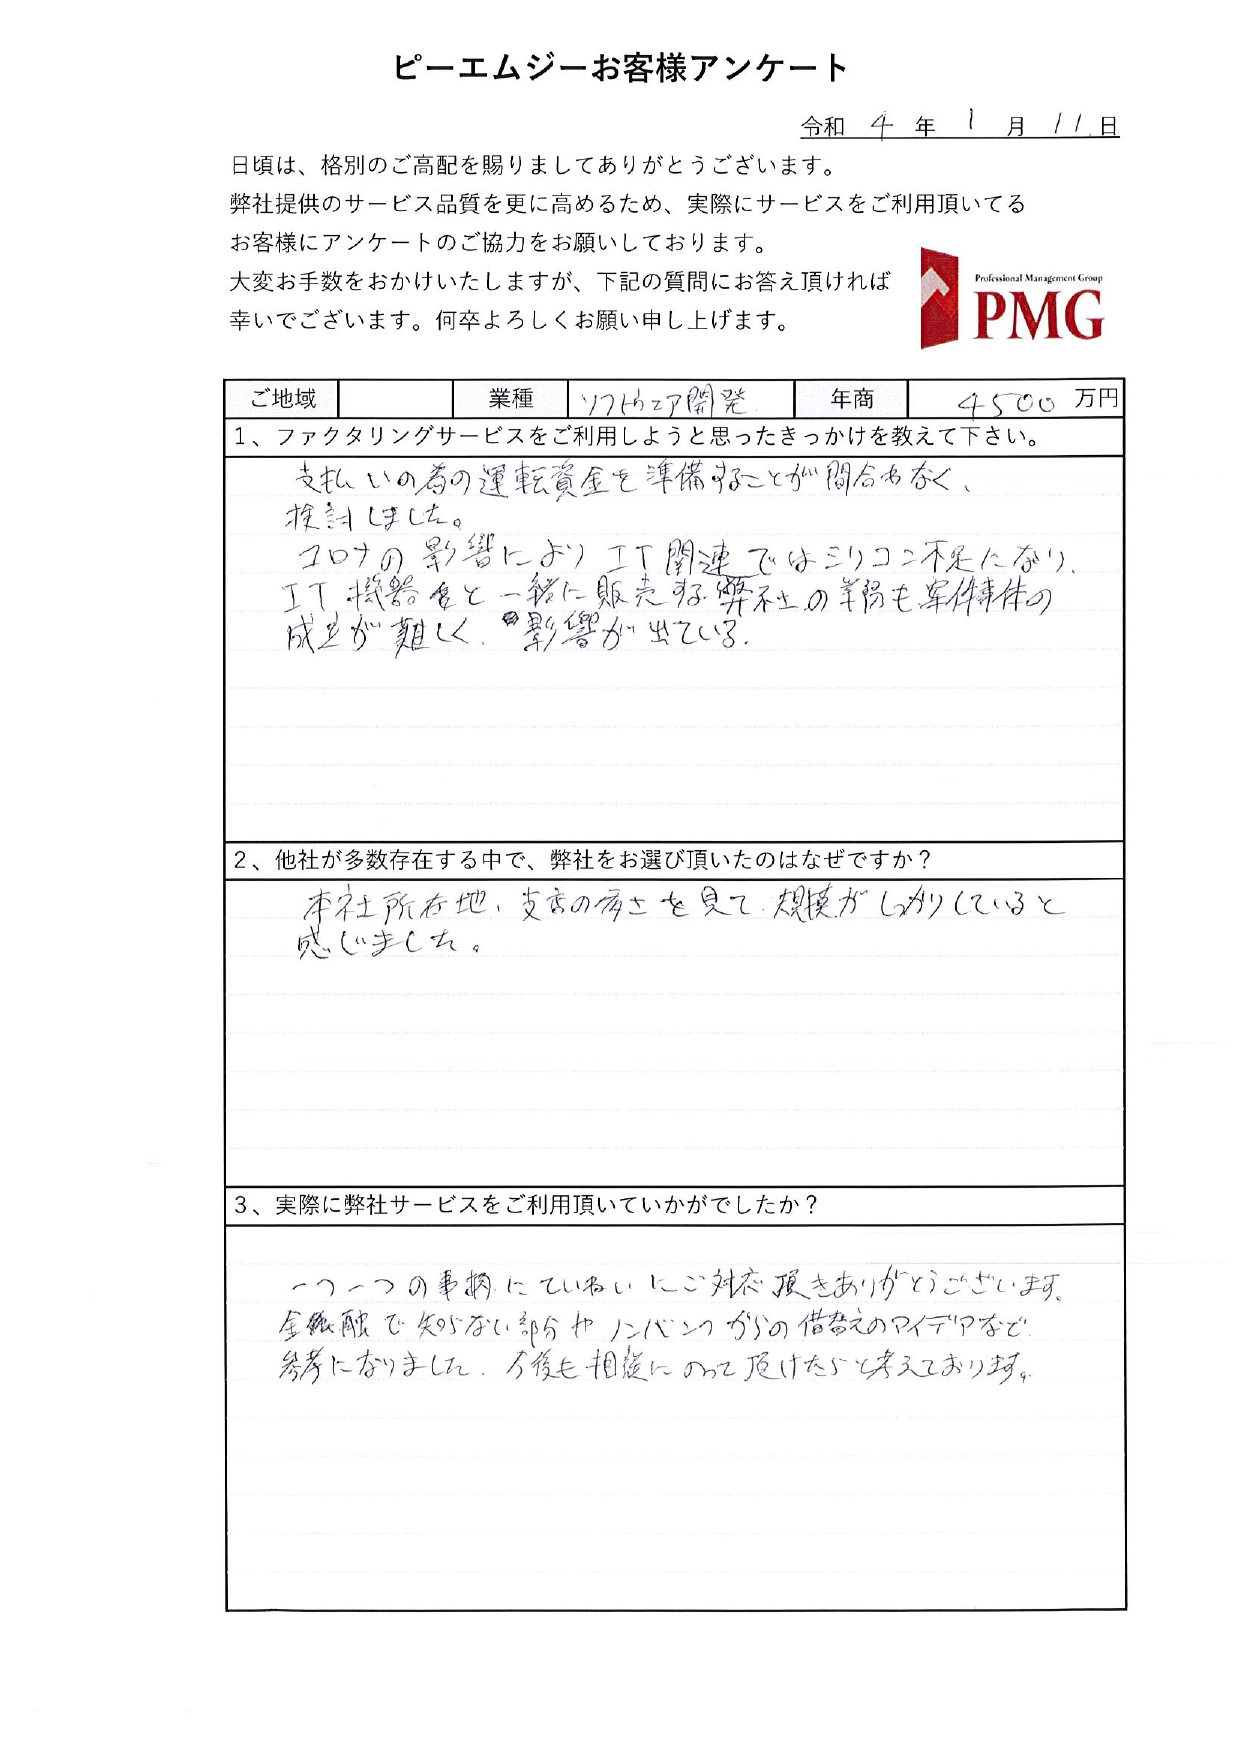 ピーエムジーお客様アンケート
令和 4 年 1 月 11 日
日頃は、格別のご高配を賜りましてありがとうございます。
弊社提供のサービス品質を更に高めるため、実際にサービスをご利用頂いてる
お客様にアンケートのご協力をお願いしております。
大変お手数をおかけいたしますが、下記の質問にお答え頂ければ
幸いでございます。何卒よろしくお願い申し上げます。
Professional Management Group
PMG
ご地域 業種 ソフトウェア開発 年商 4500 万円
1、ファクタリングサービスをご利用しようと思ったきっかけを教えて下さい。
支払いの為の運転資金を準備することが間合わなく、
検討しました。
コロナの影響によりIT関連ではシリコン不足になり、
IT機器などと一緒に販売する弊社の業務も案件事体の
成立が難しく、影響が出ている。
2、他社が多数存在する中で、弊社をお選び頂いたのはなぜですか？
本社所在地、支店の多さを見て、規模がしっかりしていると
感じました。
3、実際に弊社サービスをご利用頂いていかがでしたか？
一つ一つの事柄にていねいにご対応頂きありがとうございます。
金融で知らない部分やノンバンクからの借替えのアイデアなど
参考になりました。今後も相談にのって頂けたらと考えております。